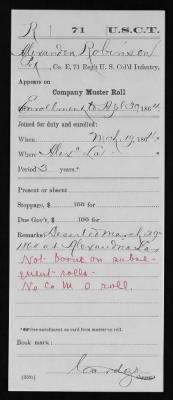 R 71 U.S.C.T.
Alexander Robinson
Co. E, 71 Reg't U. S. Col'd Infantry.
Appears on
Company Muster Roll
Enrollment to Apl 30, 1864
Joined for duty and enrolled:
When Mch 17, 1864
Where Alex' La
Period 3 years
Present or absent
Stoppage, $ 100 for
Due Gov't, $ 100 for
Remarks: Deserted March 29
1864 at Alexandria La
Not borne on subse-
quent rolls—
No Co M O roll.
*See enrollment on card from muster-in roll.
Book mark:
(358)